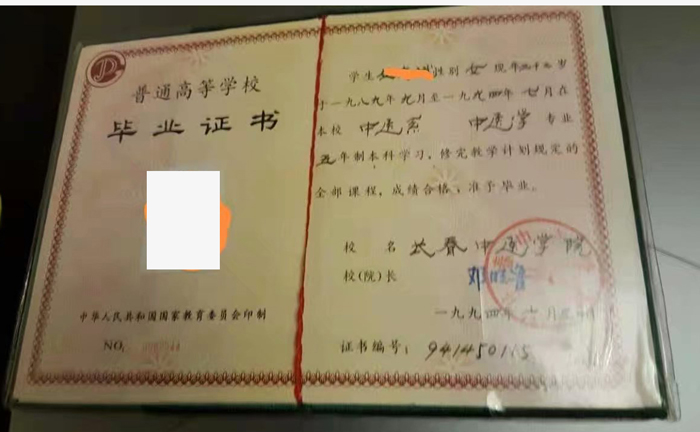 普通高等学校
毕业证书
中华人民共和国国家教育委员会印制
NO.
学生 性别 女 现年 岁
于一九八九年九月至一九九四年七月在
本校 中医系 中医学 专业
五年制本科学习,修完教学计划规定的
全部课程,成绩合格,准予毕业。
校 名 长春中医学院
校(院)长
一九九四年七月
证书编号: 941450115